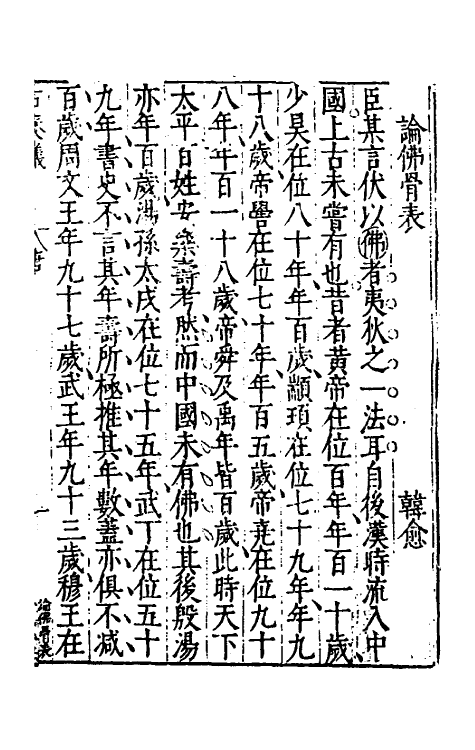 論佛骨表 韓愈
臣某言伏以佛者夷狄之一法耳自後漢時流入中
國上古未嘗有也昔者黃帝在位百年年百一十歲
少昊在位八十年年百歲顓頊在位七十九年年九
十八歲帝嚳在位七十年年百五歲帝堯在位九十
八年年百一十八歲帝舜及禹年皆百歲此時天下
太平百姓安樂壽考然而中國未有佛也其後殷湯
亦年百歲湯孫太戊在位七十五年武丁在位五十
九年書史不言其年壽所極推其年數蓋亦俱不减
百歲周文王年九十七歲武王年九十三歲穆王在
論佛骨表